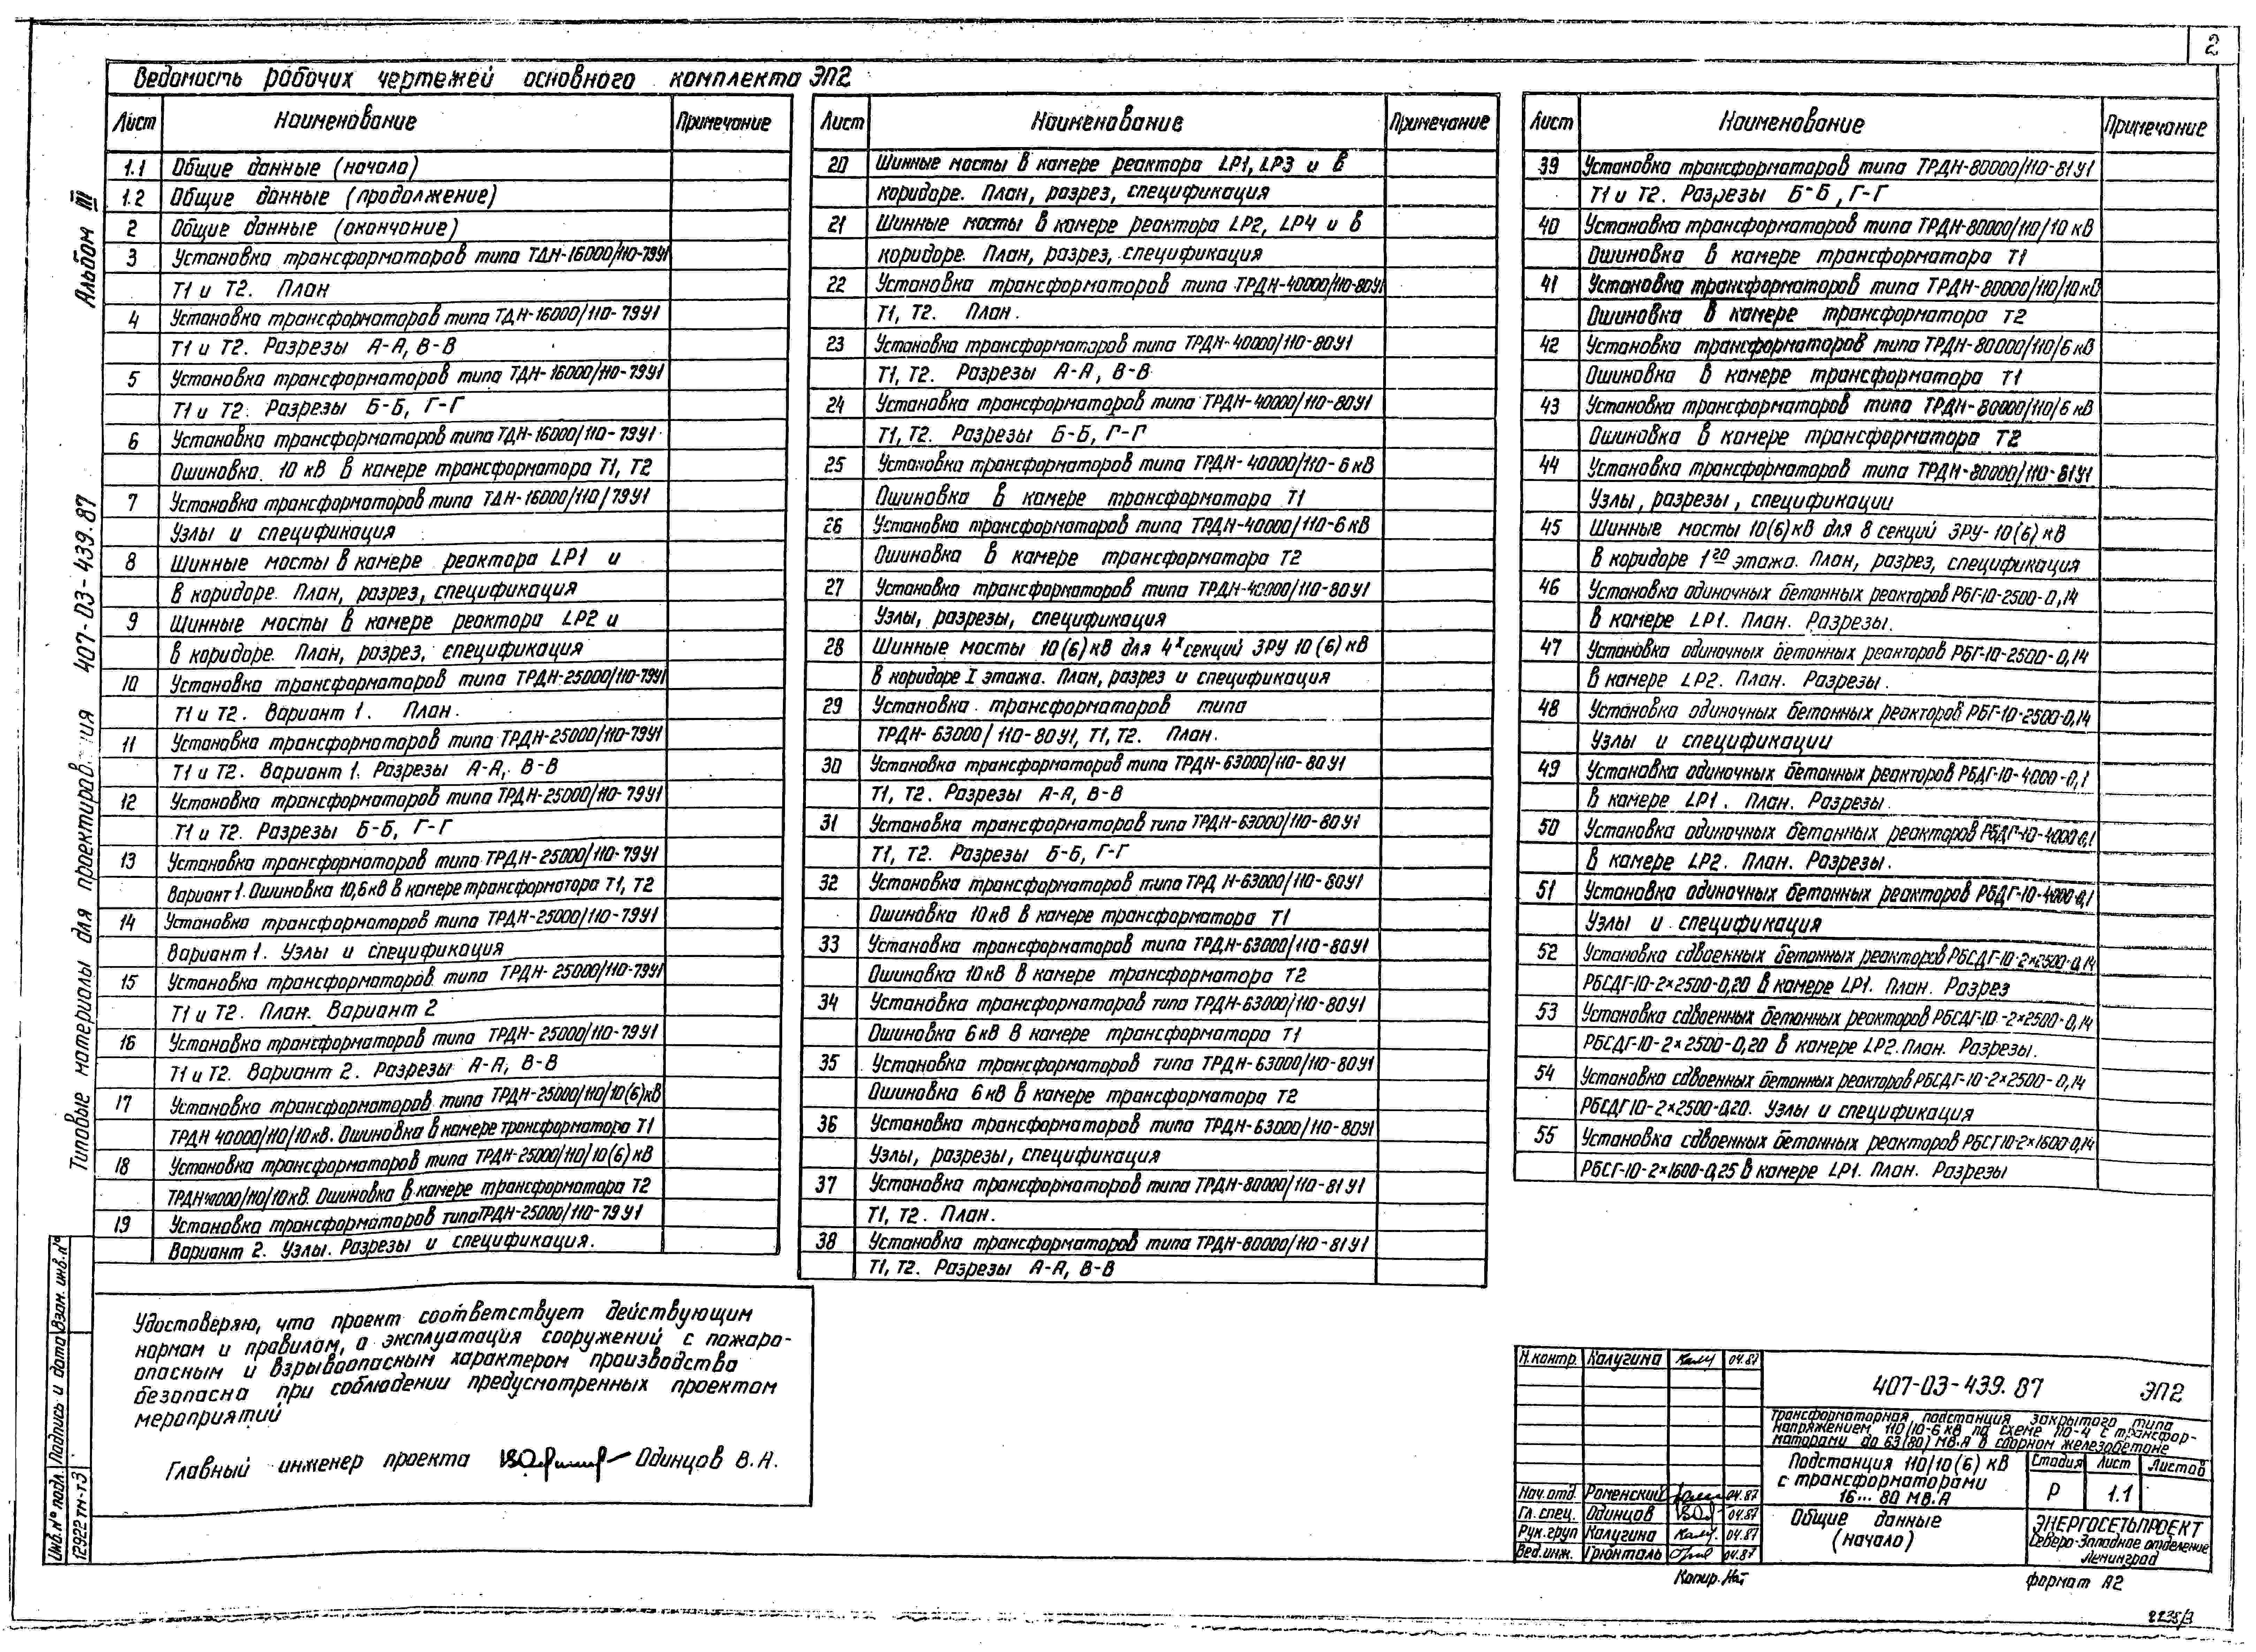 2
Ведомость рабочих чертежей основного комплекта ЭП2
Лист Наименование Примечание
1.1 Общие данные (начало)
1.2 Общие данные (продолжение)
2 Общие данные (окончание)
3 Установка трансформаторов типа ТДН-16000/110-79У1
Т1 и Т2. План
4 Установка трансформаторов типа ТДН-16000/110-79У1
Т1 и Т2. Разрезы А-А, В-В
5 Установка трансформаторов типа ТДН-16000/110-79У1
Т1 и Т2. Разрезы Б-Б, Г-Г
6 Установка трансформаторов типа ТДН-16000/110-79У1
Ошиновка 10 кВ в камере трансформатора Т1, Т2
7 Установка трансформаторов типа ТДН-16000/110/79У1
Узлы и спецификация
8 Шинные мосты в камере реактора LP1 и
в коридоре. План, разрез, спецификация
9 Шинные мосты в камере реактора LP2 и
в коридоре. План, разрез, спецификация
10 Установка трансформаторов типа ТРДН-25000/110-79У1
Т1 и Т2. Вариант 1. План.
11 Установка трансформаторов типа ТРДН-25000/110-79У1
Т1 и Т2. Вариант 1. Разрезы А-А, В-В
12 Установка трансформаторов типа ТРДН-25000/110-79У1
Т1 и Т2. Разрезы Б-Б, Г-Г
13 Установка трансформаторов типа ТРДН-25000/110-79У1
Вариант 1. Ошиновка 10,6кВ в камере трансформатора Т1, Т2
14 Установка трансформаторов типа ТРДН-25000/110-79У1
Вариант 1. Узлы и спецификация
15 Установка трансформаторов типа ТРДН-25000/110-79У1
Т1 и Т2. План. Вариант 2
16 Установка трансформаторов типа ТРДН-25000/110-79У1
Т1 и Т2. Вариант 2. Разрезы А-А, В-В
17 Установка трансформаторов типа ТРДН-25000/110/10(6)кВ
ТРДН 40000/110/10кВ. Ошиновка в камере трансформатора Т1
18 Установка трансформаторов типа ТРДН-25000/110/10(6)кВ
ТРДН40000/110/10кВ. Ошиновка в камере трансформатора Т2
19 Установка трансформаторов типа ТРДН-25000/110-79У1
Вариант 2. Узлы. Разрезы и спецификация.
Лист Наименование Примечание
20 Шинные мосты в камере реактора LP1, LP3 и в
коридоре. План, разрез, спецификация
21 Шинные мосты в камере реактора LP2, LP4 и в
коридоре. План, разрез, спецификация
22 Установка трансформаторов типа ТРДН-40000/110-80У1
Т1, Т2. План.
23 Установка трансформаторов типа ТРДН-40000/110-80У1
Т1, Т2. Разрезы А-А, В-В
24 Установка трансформаторов типа ТРДН-40000/110-80У1
Т1, Т2. Разрезы Б-Б, Г-Г
25 Установка трансформаторов типа ТРДН-40000/110-6кВ
Ошиновка в камере трансформатора Т1
26 Установка трансформаторов типа ТРДН-40000/110-6кВ
Ошиновка в камере трансформатора Т2
27 Установка трансформаторов типа ТРДН-40000/110-80У1
Узлы, разрезы, спецификация
28 Шинные мосты 10(6)кВ для 4х секций ЗРУ 10(6)кВ
в коридоре I этажа. План, разрез и спецификация
29 Установка трансформаторов типа
ТРДН-63000/110-80У1, Т1, Т2. План.
30 Установка трансформаторов типа ТРДН-63000/110-80У1
Т1, Т2. Разрезы А-А, В-В
31 Установка трансформаторов типа ТРДН-63000/110-80У1
Т1, Т2. Разрезы Б-Б, Г-Г
32 Установка трансформаторов типа ТРДН-63000/110-80У1
Ошиновка 10кВ в камере трансформатора Т1
33 Установка трансформаторов типа ТРДН-63000/110-80У1
Ошиновка 10кВ в камере трансформатора Т2
34 Установка трансформаторов типа ТРДН-63000/110-80У1
Ошиновка 6кВ в камере трансформатора Т1
35 Установка трансформаторов типа ТРДН-63000/110-80У1
Ошиновка 6кВ в камере трансформатора Т2
36 Установка трансформаторов типа ТРДН-63000/110-80У1
Узлы, разрезы, спецификация
37 Установка трансформаторов типа ТРДН-80000/110-81У1
Т1, Т2. План.
38 Установка трансформаторов типа ТРДН-80000/110-81У1
Т1, Т2. Разрезы А-А, В-В
Лист Наименование Примечание
39 Установка трансформаторов типа ТРДН-80000/110-81У1
Т1 и Т2. Разрезы Б-Б, Г-Г
40 Установка трансформаторов типа ТРДН-80000/110/10кВ
Ошиновка в камере трансформатора Т1
41 Установка трансформаторов типа ТРДН-80000/110/10кВ
Ошиновка в камере трансформатора Т2
42 Установка трансформаторов типа ТРДН-80000/110/6кВ
Ошиновка в камере трансформатора Т1
43 Установка трансформаторов типа ТРДН-80000/110/6кВ
Ошиновка в камере трансформатора Т2
44 Установка трансформаторов типа ТРДН-80000/110-81У1
Узлы, разрезы, спецификации
45 Шинные мосты 10(6)кВ для 8 секций ЗРУ-10(6)кВ
в коридоре 1го этажа. План, разрез, спецификация
46 Установка одиночных бетонных реакторов РБГ-10-2500-0,14
в камере LP1. План. Разрезы.
47 Установка одиночных бетонных реакторов РБГ-10-2500-0,14
в камере LP2. План. Разрезы.
48 Установка одиночных бетонных реакторов РБГ-10-2500-0,14
Узлы и спецификации
49 Установка одиночных бетонных реакторов РБДГ-10-4000-0,1
в камере LP1. План. Разрезы.
50 Установка одиночных бетонных реакторов РБДГ-10-4000-0,1
в камере LP2. План. Разрезы.
51 Установка одиночных бетонных реакторов РБДГ-10-4000-0,1
Узлы и спецификация
52 Установка сдвоенных бетонных реакторов РБСДГ-10-2×2500-0,14
РБСДГ-10-2×2500-0,20 в камере LP1. План. Разрез
53 Установка сдвоенных бетонных реакторов РБСДГ-10-2×2500-0,14
РБСДГ-10-2×2500-0,20 в камере LP2. План. Разрезы.
54 Установка сдвоенных бетонных реакторов РБСДГ-10-2×2500-0,14
РБСДГ 10-2×2500-0,20. Узлы и спецификация
55 Установка сдвоенных бетонных реакторов РБСГ-10-2×1600-0,14
РБСГ-10-2×1600-0,25 в камере LP1. План. Разрезы
Альбом III
Типовые материалы для проектирования 407-03-439.87
Инв.№ подл. Подпись и дата Взам. инв.№
12922тм-т3
Удостоверяю, что проект соответствует действующим
нормам и правилам, а эксплуатация сооружений с пожаро-
опасным и взрывоопасным характером производства
безопасна при соблюдении предусмотренных проектом
мероприятий
Главный инженер проекта Одинцов В.А.
Н.контр. Калугина 04.87
Нач.отд. Роменский 04.87
Гл.спец. Одинцов 04.87
Рук.груп Калугина 04.87
Вед.инж. Грюнталь 04.87
407-03-439.87 ЭП2
Трансформаторная подстанция закрытого типа
напряжением 110/10-6 кВ по схеме 110-4 с трансфор-
маторами до 63(80) МВ.А в сборном железобетоне
Подстанция 110/10(6) кВ
с трансформаторами
16... 80 МВ.А
Стадия Лист Листов
Р 1.1
Общие данные
(начало)
ЭНЕРГОСЕТЬПРОЕКТ
Северо-Западное отделение
Ленинград
Копир. Формат А2